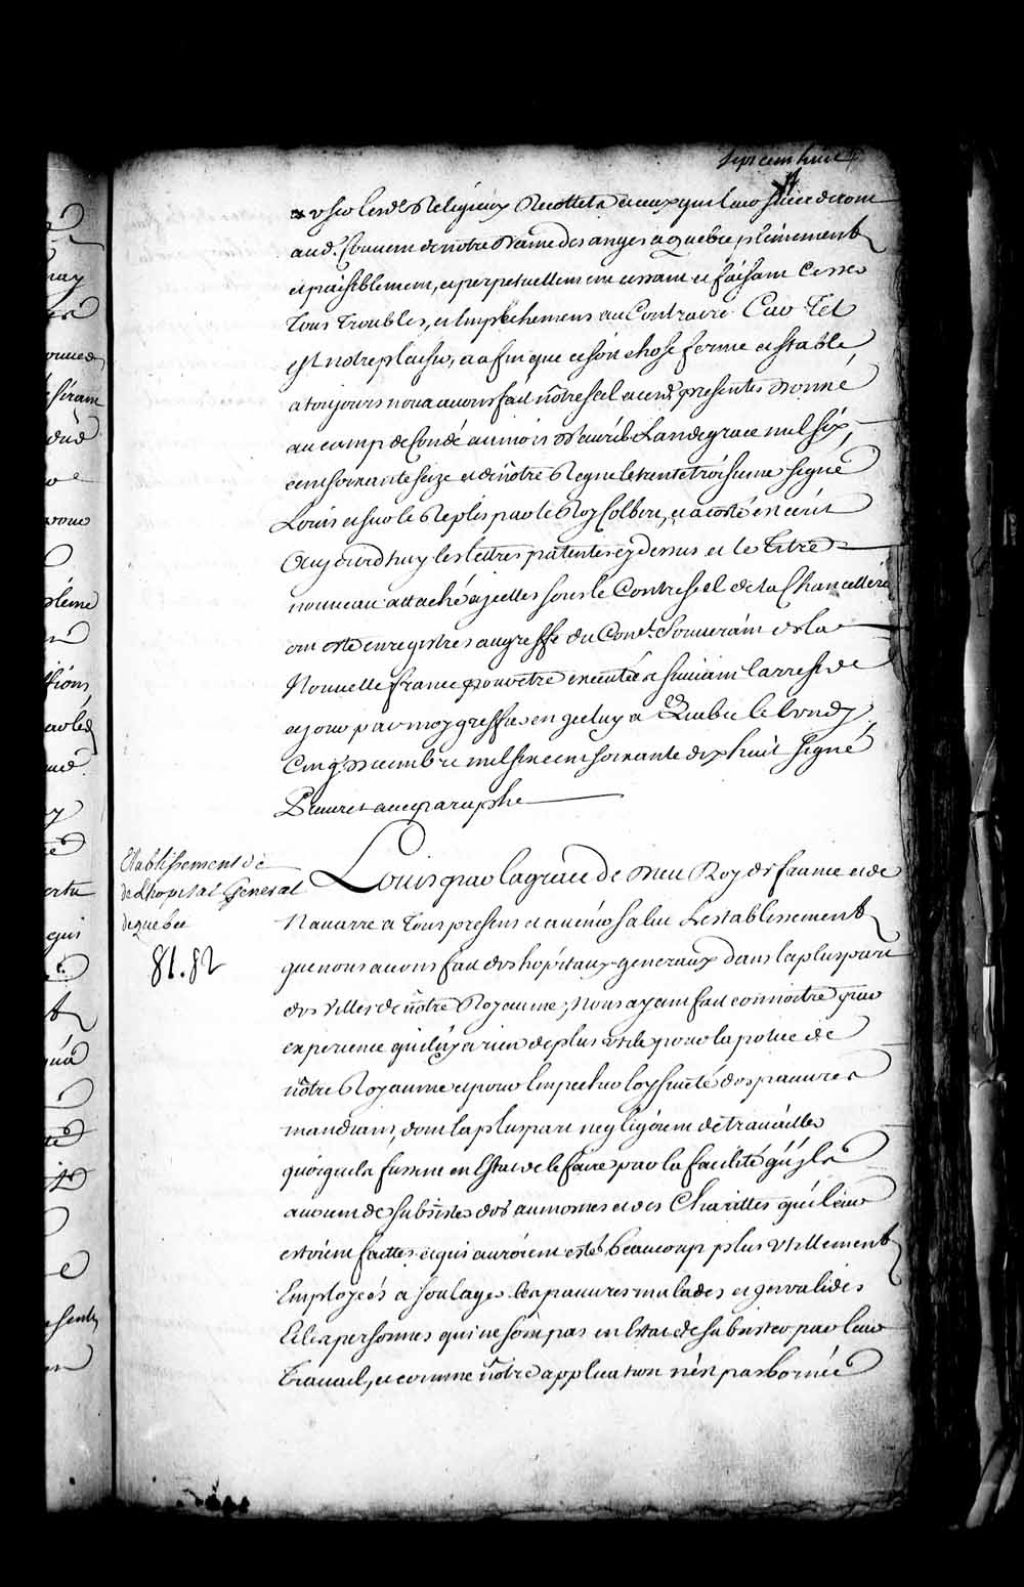 Sept cent huit
user lesd. Religieux Recollets et ceux qui leur succederont
aud. Couvent de nôtre Dame des anges a quebec pleinement
et paisiblement, et perpetuellement cessant et faisant cesser
tous troubles, et Empêchemens au Contraire Car Tel
est notre plaisir, et afin que ce soit chose ferme et stable
a toujours nous avons fait nôtre scel a cesd. presentes Donné
au camp de Condé au mois D'avril Lan de grace mil six
cent soixante seize et de nôtre Regne le trente troisieme signé
Louis et sur le Replis par le Roy Colbert, et a costé est ecrit
Aujourdhuy les lettres patentes cy dessus et le titre
nouveau attaché a jcelles sous le Contrescel de la Chancellerie
ont esté enregistrées au greffe du Conel. Souverain de la
Nouvelle france pour être executées suivant l'arrest de
ce jour par moy greffier en jceluy a Quebec le lundy
Cinqe. Decembre mil six cent soixante dix huit signé
Peuvret avec paraphe
Etablissement de
de Lhopital General
de quebec
81.82
Louis par la grace de Dieu Roy de france et de
Navarre a tous presens et avenir salut Lestablissement
que nous avons fait des hôpitaux generaux dans la pluspart
des villes de nôtre Royaume, Nous ayant fait connoistre par
experience quil ny a rien de plus utile pour la police de
nôtre Royaume et pour Empecher loysiveté des pauvres
mandians, dont la pluspart negligoient de travailler
quoiquils fussent en Estat de le faire par la facilité qu'jls
avoient de subsister des aumosnes et des Charittés qui leur
estoient faittes et qui auroient estés beaucoup plus utillement
Employées a soulager les pauvres malades et jnvalides
Et les personnes qui ne sont pas en Estat de subsister par leur
travail, et comme nôtre application n'est pas bornée